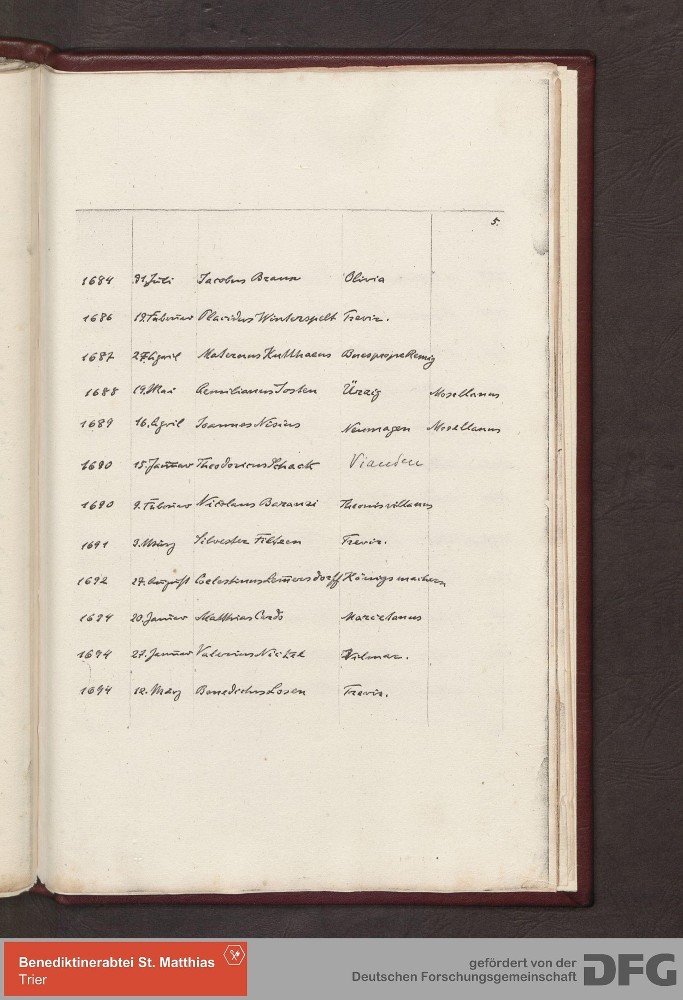 5.
1684 31. Juli Jacobus Braun Olivia
1686 19. Februar Placidus Winterspelt Trevir.
1687 27. April Maternus Kutthaens Buesprope Remig
1688 19. Mai Aemilianus Josten Ürzig Mosellanus
1689 16. April Joannes Nisius Neumagen Mosellanus
1690 15. Januar Theodoricus Schack Vianden
1690 9. Februar Nicolaus Baranzi Theonisvillanus
1691 9. März Silvester Filtzen Trevir.
1692 27. August Coelestinus Lemersdorff Königsmachern
1694 20. Januar Matthias Cordo Marcetanus
1694 27. Januar Valerius Nickel Vilmar.
1694 12. März Benedictus Losen Trevir.
Benediktinerabtei St. Matthias
Trier
gefördert von der
Deutschen Forschungsgemeinschaft DFG